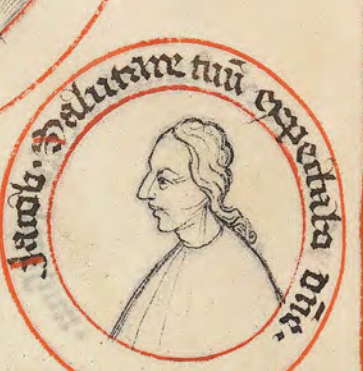 Jacob. Salutare tuū expectabo dn̄e.